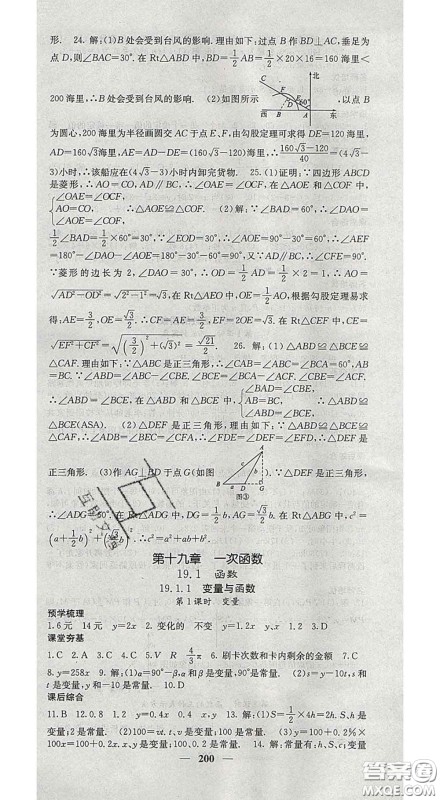 形. 24. 解:(1)B处会受到台风的影响. 理由如下:过点B作BD⊥AC,垂足为
点D,则∠BAC=30°. 在Rt△ABD中,BD=1/2 AB=1/2×20×16=160海里<
200海里,∴B处会受到台风的影响. (2)如图所示 北 60° 西 东 ,以点B
为圆心,200海里为半径画圆交AC于点E与F,由勾股定理可求得DE=120海里,
AD=160√3海里,AE=AD-DE=(160√3-120)海里,∴(160√3-120)/40=(4√3-
3)小时,∴该船应在(4√3-3)小时内卸完货物. 25. (1)证明:∵四边形ABCD
是菱形,∴AO=CO,AD∥BC,∴∠OAE=∠OCF. 在△AOE和△COF中,
{∠OAE=∠OCF, AO=CO, ∠AOE=∠COF, ∴△AOE≌△COF. (2)解:∵∠BAD=60°,∴∠DAO=
1/2∠BAD=1/2×60°=30°,∵∠EOD=30°,∴∠AOE=90°-30°=60°,∴∠AEF
=180°-∠DAO-∠AOE=180°-30°-60°=90°,又∵AD∥BC,∴∠CFE=90°.
∵菱形的边长为2,∠DAO=30°,∴OD=1/2AD=1/2×2=1,∴AO=
√(AD²-OD²)=√(2²-1²)=√3,∴在Rt△AOE中,∠DAO=30°,根据勾股定理易求
得:AE=3/2,OE=√3/2,∴CF=AE=3/2,∴EF=√3. 在Rt△CEF中,CE=
√(EF²+CF²)=√((3/2)²+(√3)²)=√21/2. 26. 解:(1)△ABD≌△BCE≌
△CAF. 理由如下:∵△ABC是正三角形,∴∠CAB=∠ABC=∠BCA=60°,AB
=BC. ∵∠ABD=∠ABC-∠CBE,∠BCE=∠ACB-∠ACF,∠CBE=∠ACF,
∴∠ABD=∠BCE, 在△ABD和△BCE中,{∠BAD=∠CBE, AB=BC, ∠ABD=∠BCE, ∴△ABD≌
△BCE(ASA). (2)△DEF是正三角形. 理由如下:∵△ABD≌△BCE≌
△CAF,∴∠ADB=∠BEC=∠CFA,∴∠FDE=∠DEF=∠EFD,∴△DEF是
正三角形. (3)作AG⊥BD于点G(如图 A B D G 图③ ). ∵△DEF是正三角形,
∴∠ADG=60°. 在Rt△ADG中,DG=1/2b,AG=√3/2b,在Rt△ABG中,c²=
(a+1/2b)²+(√3/2b)²,∴c²=a²+ab+b².
第十九章 一次函数
19.1 函数
19.1.1 变量与函数
第1课时 变量
预学梳理
1. 6元 14元 y=2x 2. 变化的 不变 y=1.2x x、y 1.2 10. D
课堂夯基
1. C 2. A 3. C 4. A 5. V、R 4/3 π 6. 刷卡次数和卡内剩余的金额 7. C
8. y=258x 9. 解:(1)α=90°-β,α、β是变量,90°是常量. (2)s=y-10t,s和
t是变量,y和-10是常量.
课后综合
11. B 12. 0.8 1.2 y=0.4x 0.4 x、y 13. 解:(1)S=1/2×4h=2h,S、h是
变量,2是常量. (2)100=vt,t、v是变量,100是常量. (3)y=100+0.2%×
100x=100+0.2x,x、y是变量,100和0.2是常量. 14. 解:常量有:h、S;变量
200
互助文
答案圈
MXQE.COM